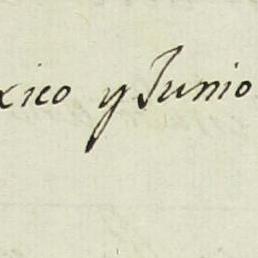 xico y Junio